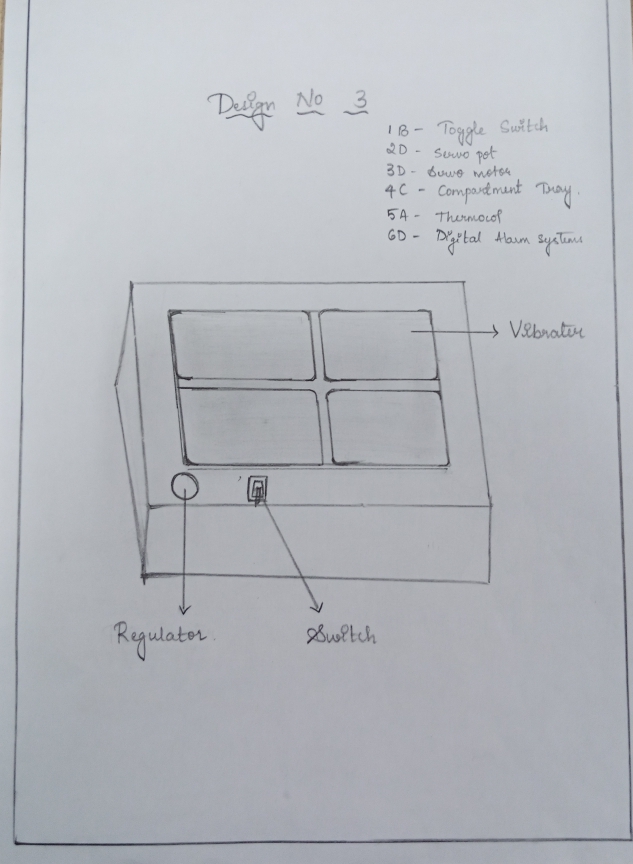 Design No 3
1B - Toggle Switch
2D - Servo pot
3D - Servo motor
4C - Compartment Tray.
5A - Thermocol
6D - Digital Alarm Systems
Vibrator
Regulator
Switch